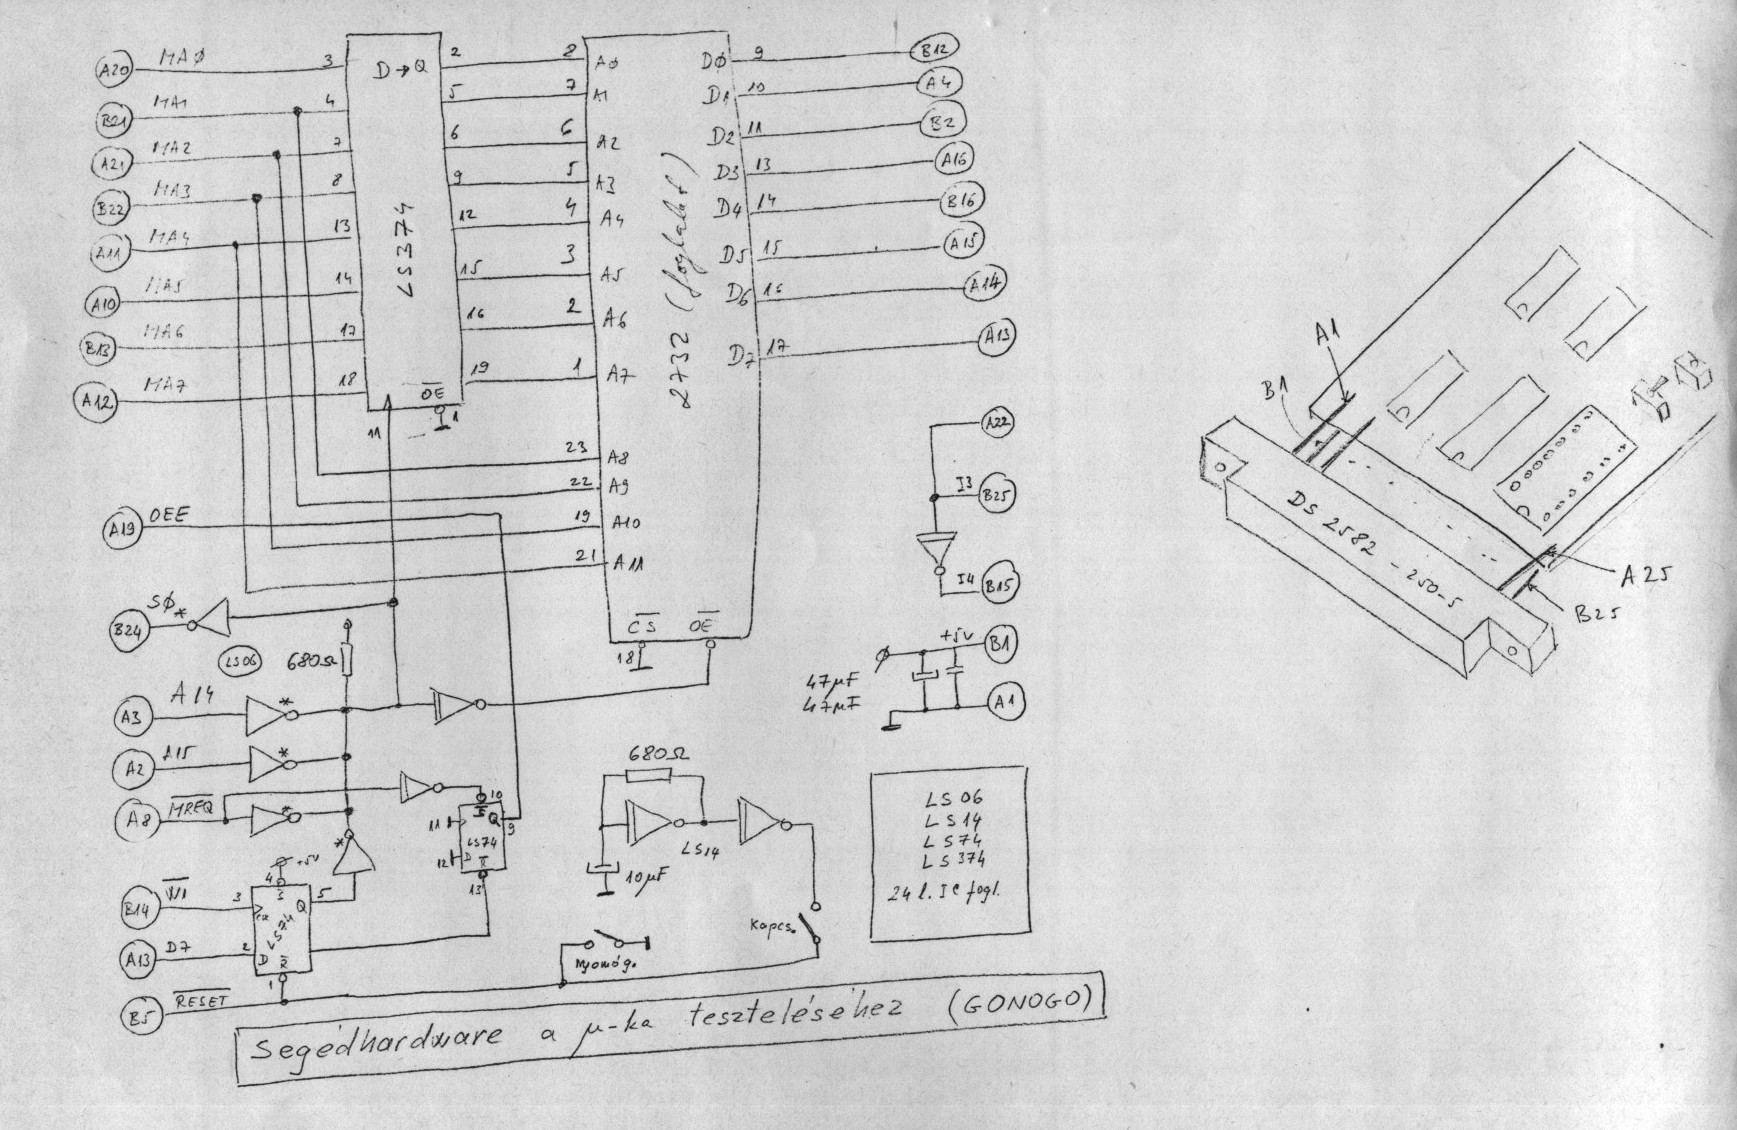 A20 MAØ 3 D→Q 2 8 AØ DØ 9 B12
B21 MA1 4 5 7 A1 D1 10 A4
A21 MA2 7 6 6 A2 D2 11 B2
B22 MA3 8 9 5 A3 D3 13 A16
A11 MA4 13 12 4 A4 D4 14 B16
A10 MA5 14 15 3 A5 D5 15 A15
B13 MA6 17 16 2 A6 D6 16 A14
A12 MA7 18 19 1 A7 D7 17 A13
LS374
OE
11 1
2732 (foglalat)
23 A8
22 A9
A19 OEE 19 A10
21 A11
CS OE
18
A22
I3 B25
I4 B15
B24 SØ *
LS06 680Ω
+5V B1
47μF
47μF A1
A3 A14 *
A2 A15 *
A8 MREQ *
*
10
S
11 Q 9
LS74
12 D R
13
+5V
4
B14 WI 3 S 5
CK Q
LS74
A13 D7 2 D R
1
B5 RESET
680Ω
LS14
10μF
Kapcs.
Nyomóg.
LS06
LS14
LS74
LS374
24 l. IC fogl.
Segédhardware a μ-ka teszteléséhez (GONOGO)
A1
B1
DS 2582 - 250-5
A25
B25